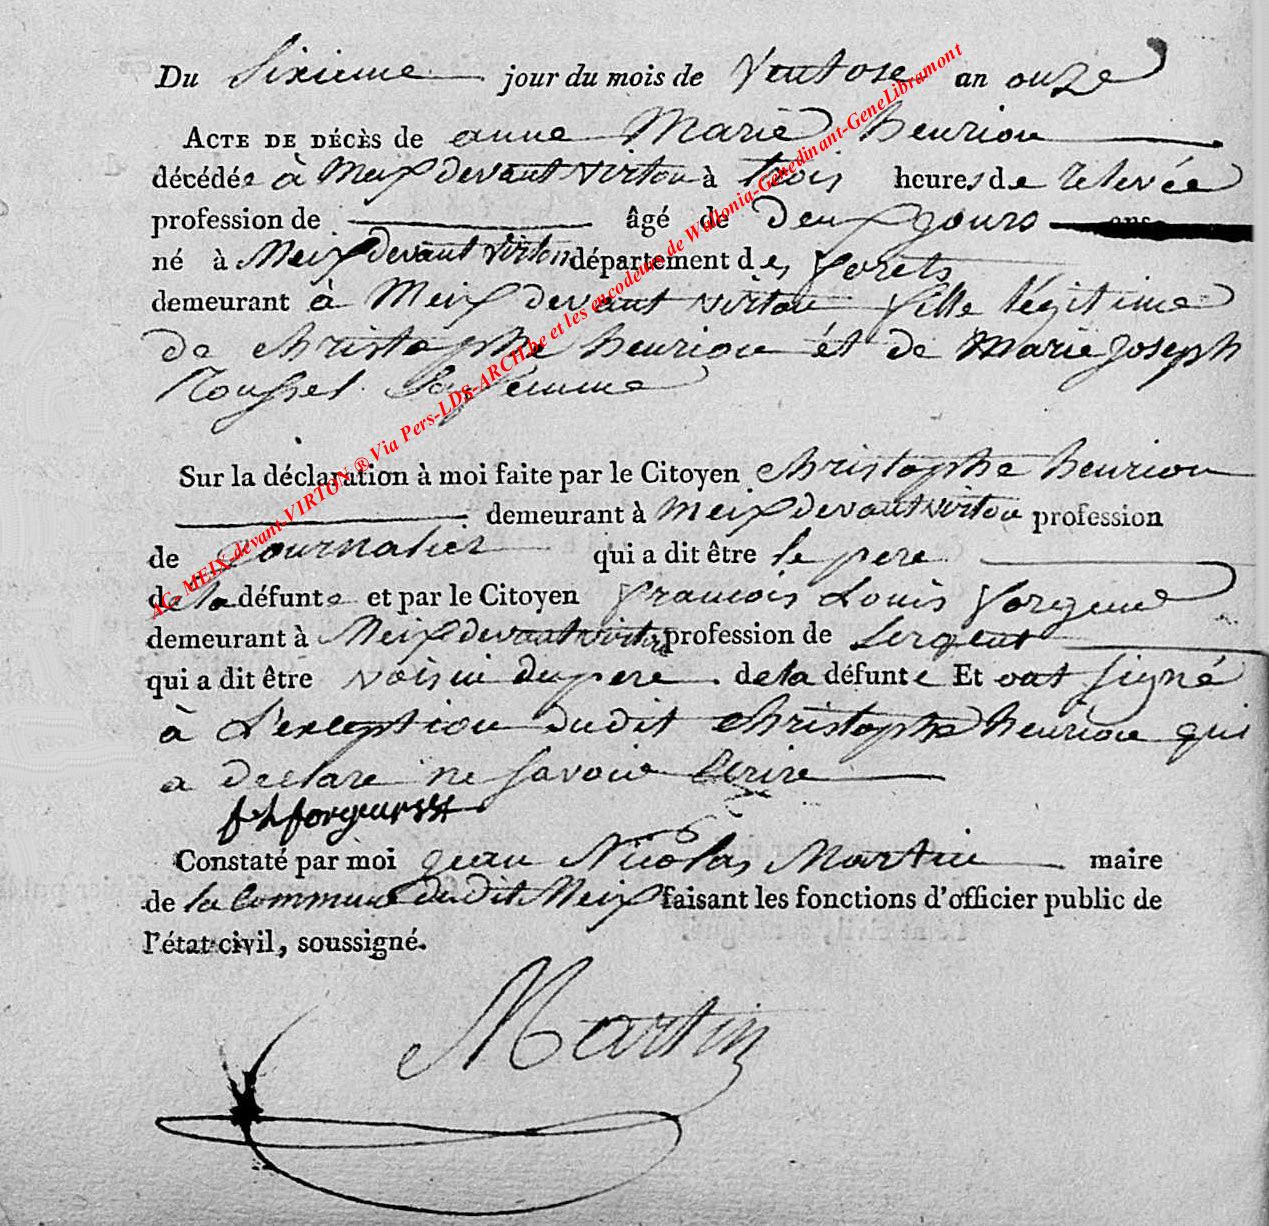 Du Sixieme jour du mois de Ventose an onze
ACTE DE DÉCÈS de anne Marie henrion
décédée à Meix devant virton à trois heures de relevée
profession de âgé de deux jours ans
né à Meix devant virton département des forets
demeurant à Meix devant virton fille legitime
de christophe henrion et de Marie Joseph
Roussel Sa femme
Sur la déclaration à moi faite par le Citoyen christophe henrion
demeurant à Meix devant virton profession
de Journalier qui a dit être le pere
de la défunte et par le Citoyen francois Louis
demeurant à Meix devant virton profession de Sergent
qui a dit être voisin du pere de la défunte Et ont signé
à L'exception du dit christophe henrion qui
a declare ne savoir Ecrire
Constaté par moi jean Nicolas Martin maire
de la Commune du dit Meix faisant les fonctions d'officier public de
l'état civil, soussigné.
Martin
AC. MEIX-devant-VIRTON ® Via Pers-LDS-ARCH.be et les encodeurs de Wallonia-Genedinant-GeneLibramont